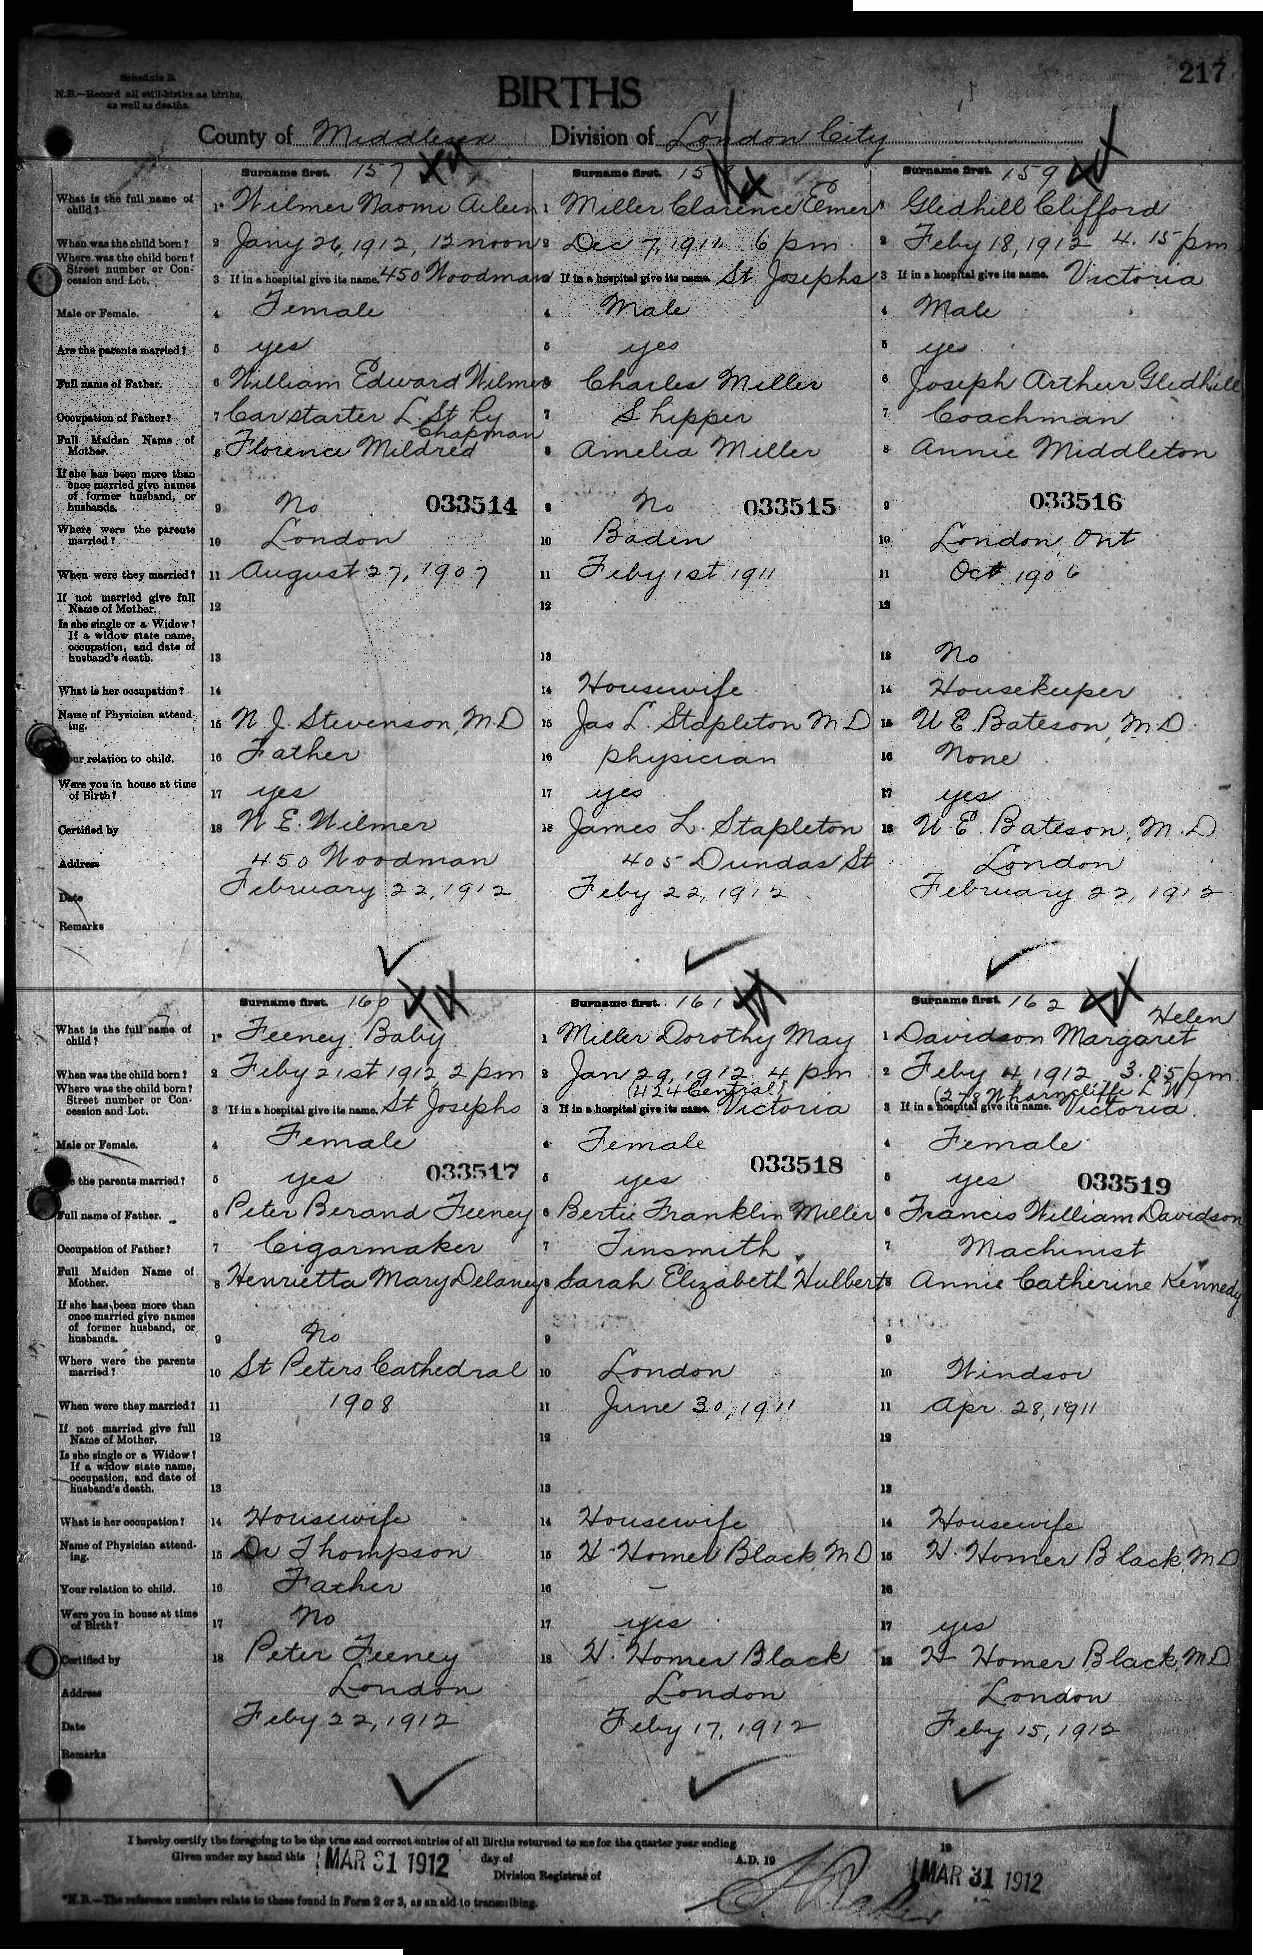 217
Schedule B.
N.B.—Record all still-births as births,
as well as deaths.
BIRTHS
County of Middlesex Division of London City
Surname first. 157
Surname first.
Surname first. 159
What is the full name of child?
1* Wilmer Naomi Aileen
1 Miller Clarence Elmer
1 Gledhill Clifford
When was the child born?
2 Jany 26, 1912, 12 noon
2 Dec 7, 1911 6 pm
2 Feby 18, 1912 4.15 pm
Where was the child born? Street number or Concession and Lot.
3 If in a hospital give its name. 450 Woodman
3 If in a hospital give its name. St Josephs
3 If in a hospital give its name. Victoria
Male or Female.
4 Female
4 Male
4 Male
Are the parents married?
5 yes
5 yes
5 yes
Full name of Father.
6 William Edward Wilmer
6 Charles Miller
6 Joseph Arthur Gledhill
Occupation of Father?
7 Car starter L. St Ry
7 Shipper
7 Coachman
Full Maiden Name of Mother.
Chapman
8 Florence Mildred
8 Amelia Miller
8 Annie Middleton
If she has been more than once married give names of former husband, or husbands.
9 No 033514
9 No 033515
9 033516
Where were the parents married?
10 London
10 Baden
10 London Ont
When were they married?
11 August 27, 1907
11 Feby 1st 1911
11 Oct 1906
If not married give full Name of Mother.
12
12
12
Is she single or a Widow? If a widow state name, occupation, and date of husband's death.
13
13
13 No
What is her occupation?
14
14 Housewife
14 Housekeeper
Name of Physician attending.
15 W J. Stevenson, M D
15 Jas L. Stapleton M D
15 W E. Bateson, M D.
Your relation to child.
16 Father
16 physician
16 None
Were you in house at time of Birth?
17 yes
17 yes
17 yes
Certified by
18 W E. Wilmer
18 James L. Stapleton
18 W E. Bateson, M.D
Address
450 Woodman
405 Dundas St
London
Date
February 22, 1912
Feby 22, 1912
February 22, 1912
Remarks
Surname first. 160
Surname first. 161
Surname first. 162
What is the full name of child?
1* Feeney Baby
1 Miller Dorothy May
Helen
1 Davidson Margaret
When was the child born?
2 Feby 21st 1912, 2 pm
2 Jan 29, 1912 4 pm
2 Feby 4 1912 3.05 pm
Where was the child born? Street number or Concession and Lot.
3 If in a hospital give its name. St Josephs
(424 Central)
3 If in a hospital give its name. Victoria
(278 Wharncliffe L W)
3 If in a hospital give its name. Victoria.
Male or Female.
4 Female
4 Female
4 Female
Are the parents married?
5 yes 033517
5 yes 033518
5 yes 033519
Full name of Father.
6 Peter Berand Feeney
6 Bertie Franklin Miller
6 Francis William Davidson
Occupation of Father?
7 Cigarmaker
7 Tinsmith
7 Machinist
Full Maiden Name of Mother.
8 Henrietta Mary Delaney
8 Sarah Elizabeth Hulbert
8 Annie Catherine Kennedy
If she has been more than once married give names of former husband, or husbands.
9 No
9
9
Where were the parents married?
10 St Peters Cathedral
10 London
10 Windsor
When were they married?
11 1908
11 June 30, 1911
11 Apr 28, 1911
If not married give full Name of Mother.
12
12
12
Is she single or a Widow? If a widow state name, occupation, and date of husband's death.
13
13
13
What is her occupation?
14 Housewife
14 Housewife
14 Housewife
Name of Physician attending.
15 Dr Thompson
15 H. Homer Black M D
15 H. Homer Black, M D
Your relation to child.
16 Father
16 –
16
Were you in house at time of Birth?
17 No
17 yes
17 yes
Certified by
18 Peter Feeney
18 H. Homer Black
18 H Homer Black, M D
Address
London
London
London
Date
Feby 22, 1912
Feby 17, 1912
Feby 15, 1912
Remarks
I hereby certify the foregoing to be the true and correct entries of all Births returned to me for the quarter year ending 19
Given under my hand this MAR 31 1912 day of A.D. 19 MAR 31 1912
Division Registrar of
*N.B.—The reference numbers relate to those found in Form 2 or 3, as an aid to transcribing.